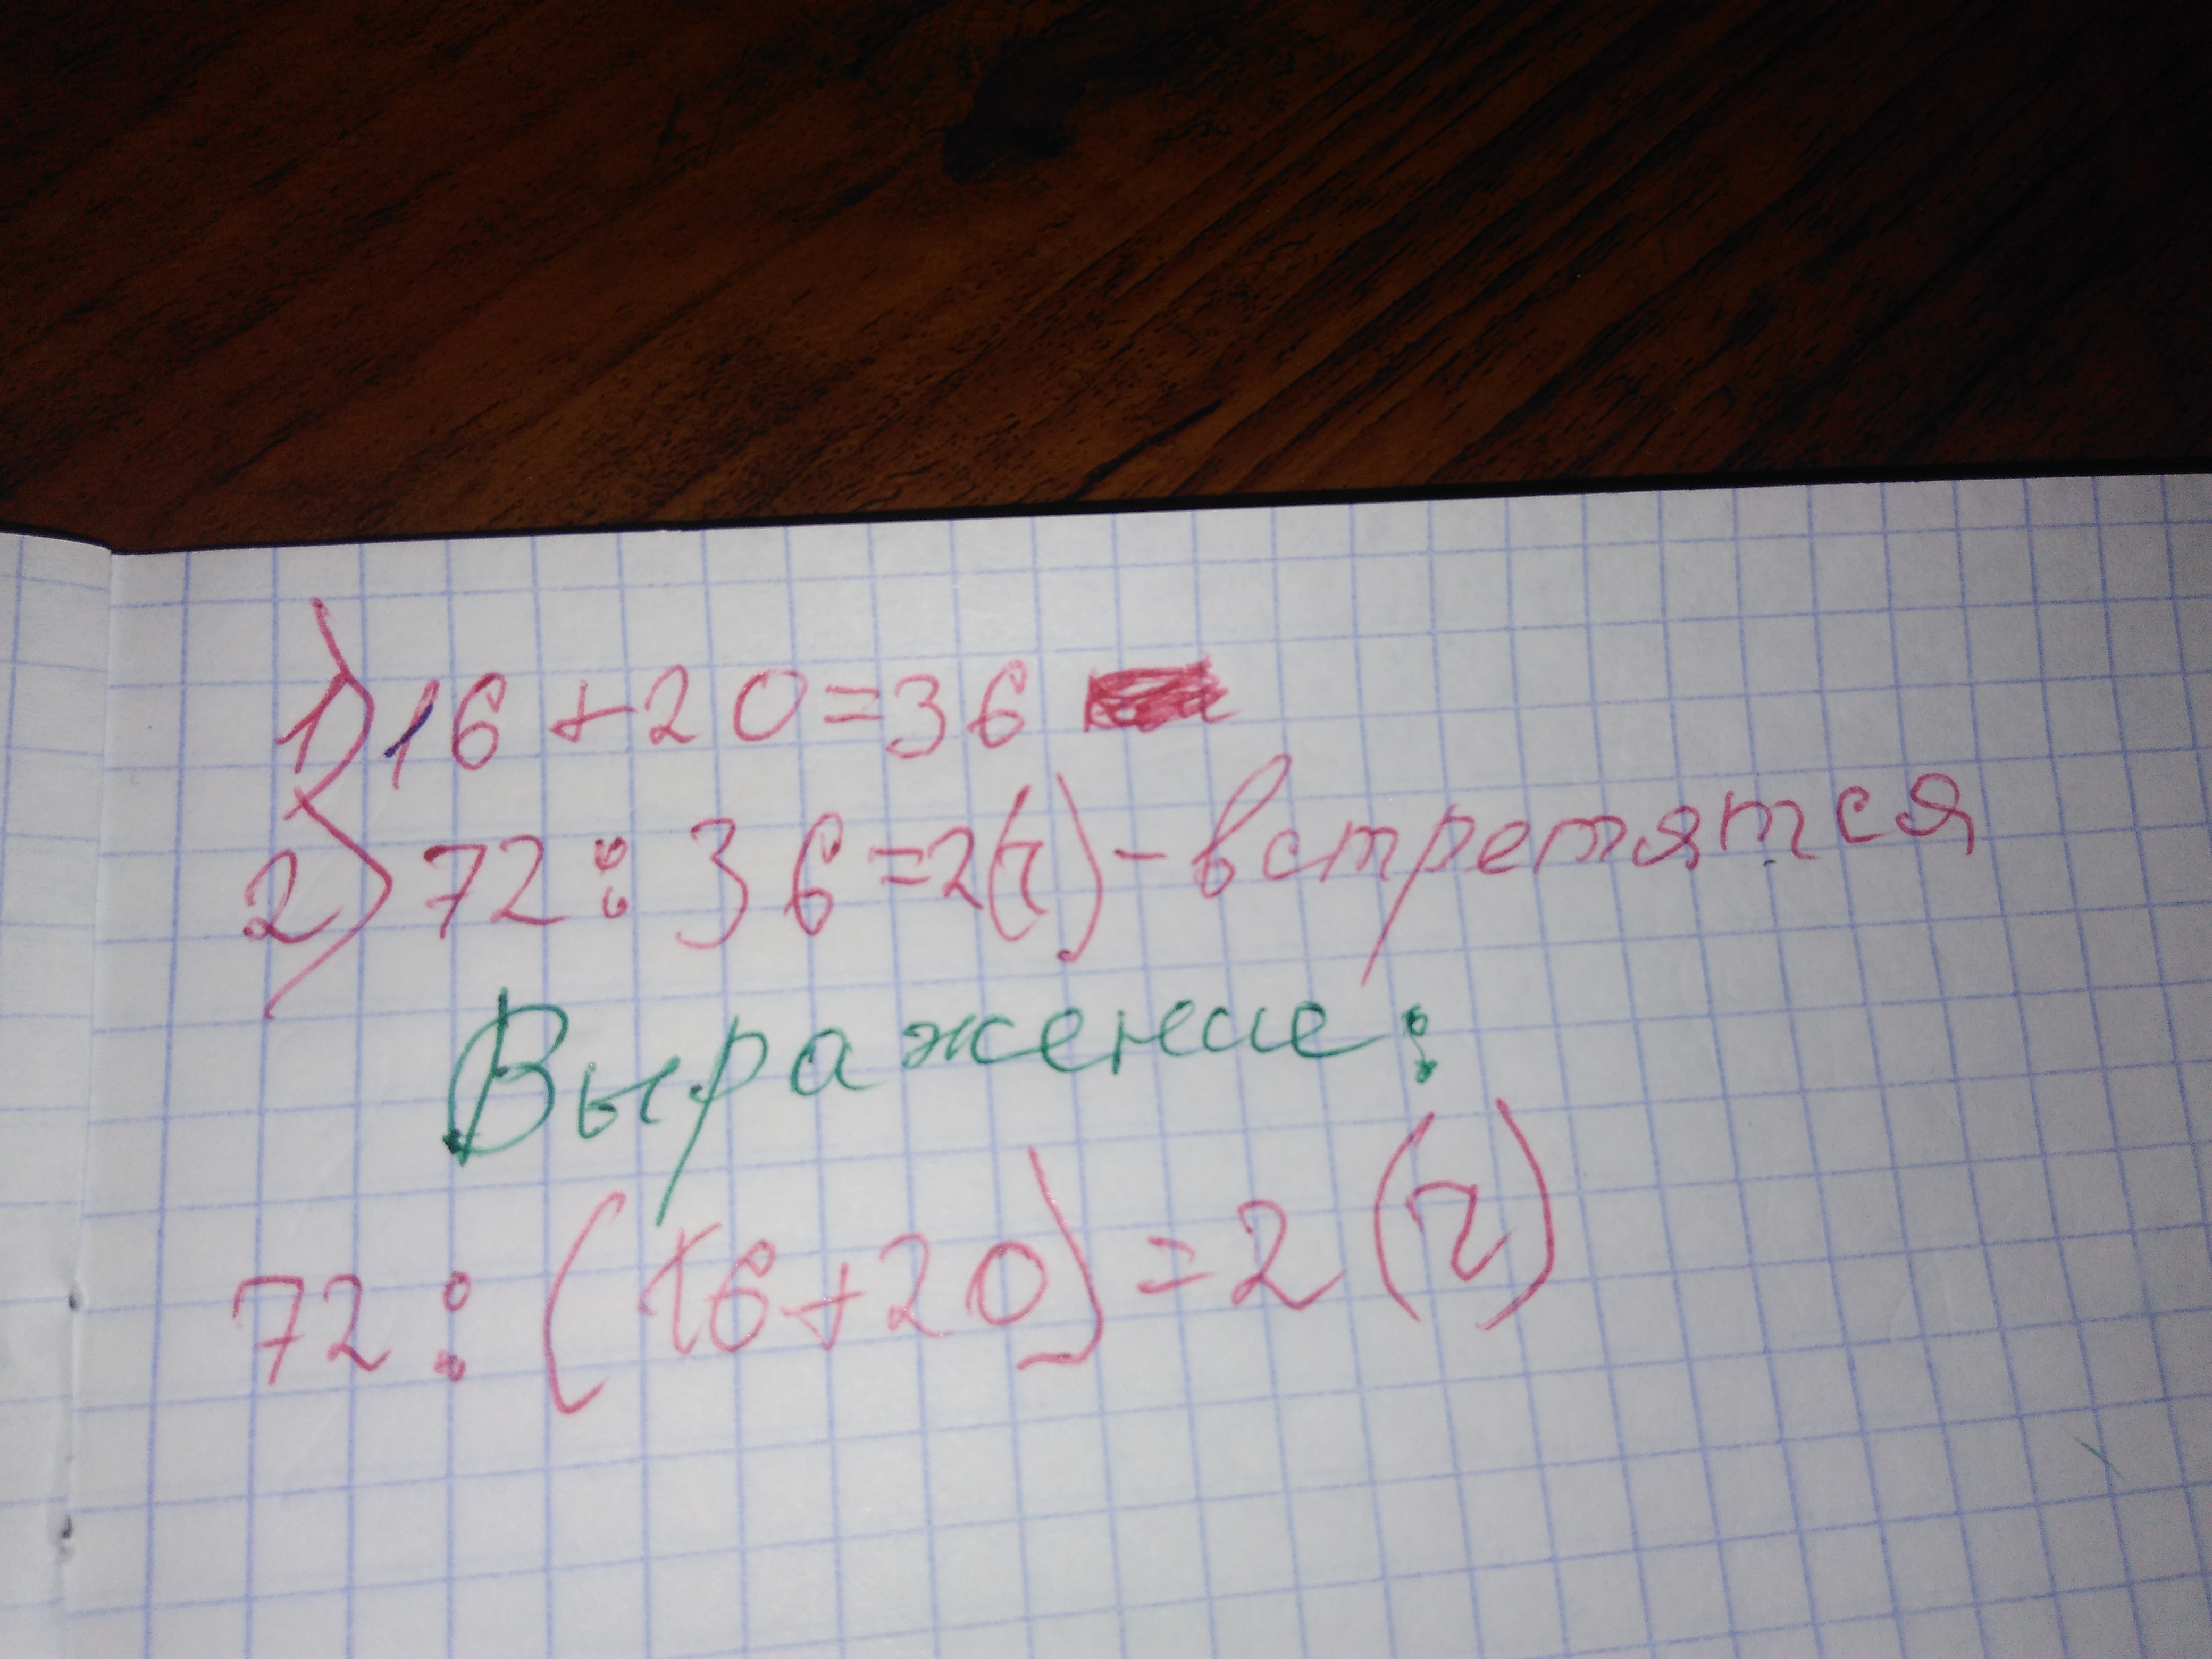 1) 16 + 20 = 36
2) 72 : 36 = 2 (ч) - встретятся
Выражение:
72 : (16 + 20) = 2 (ч)